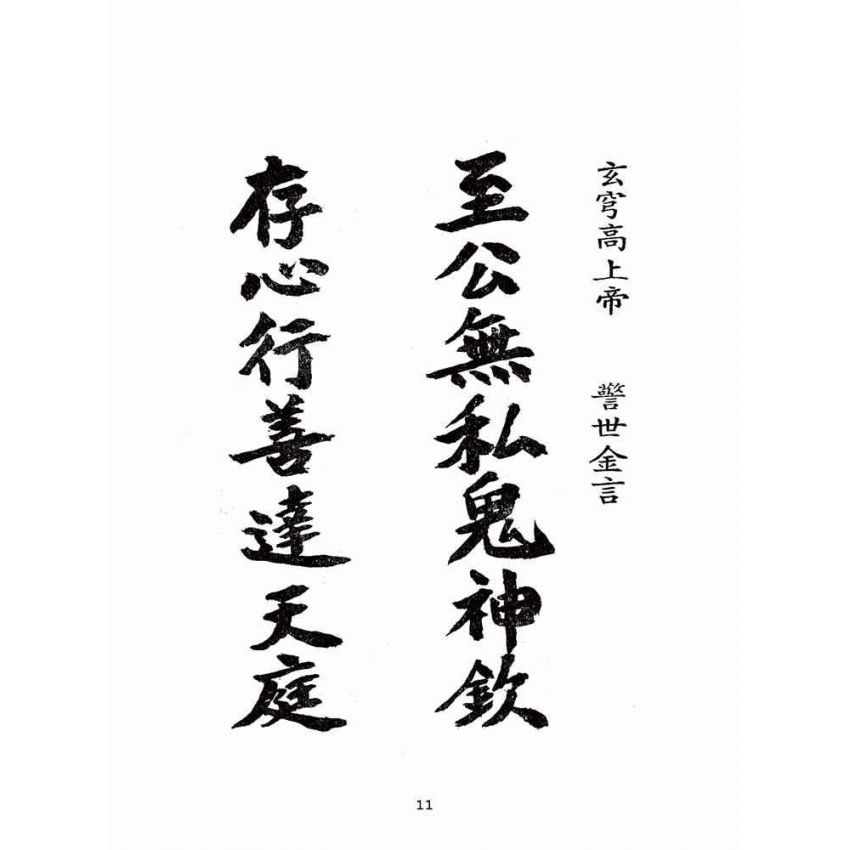 玄穹高上帝　警世金言
至公無私鬼神欽
存心行善達天庭
11